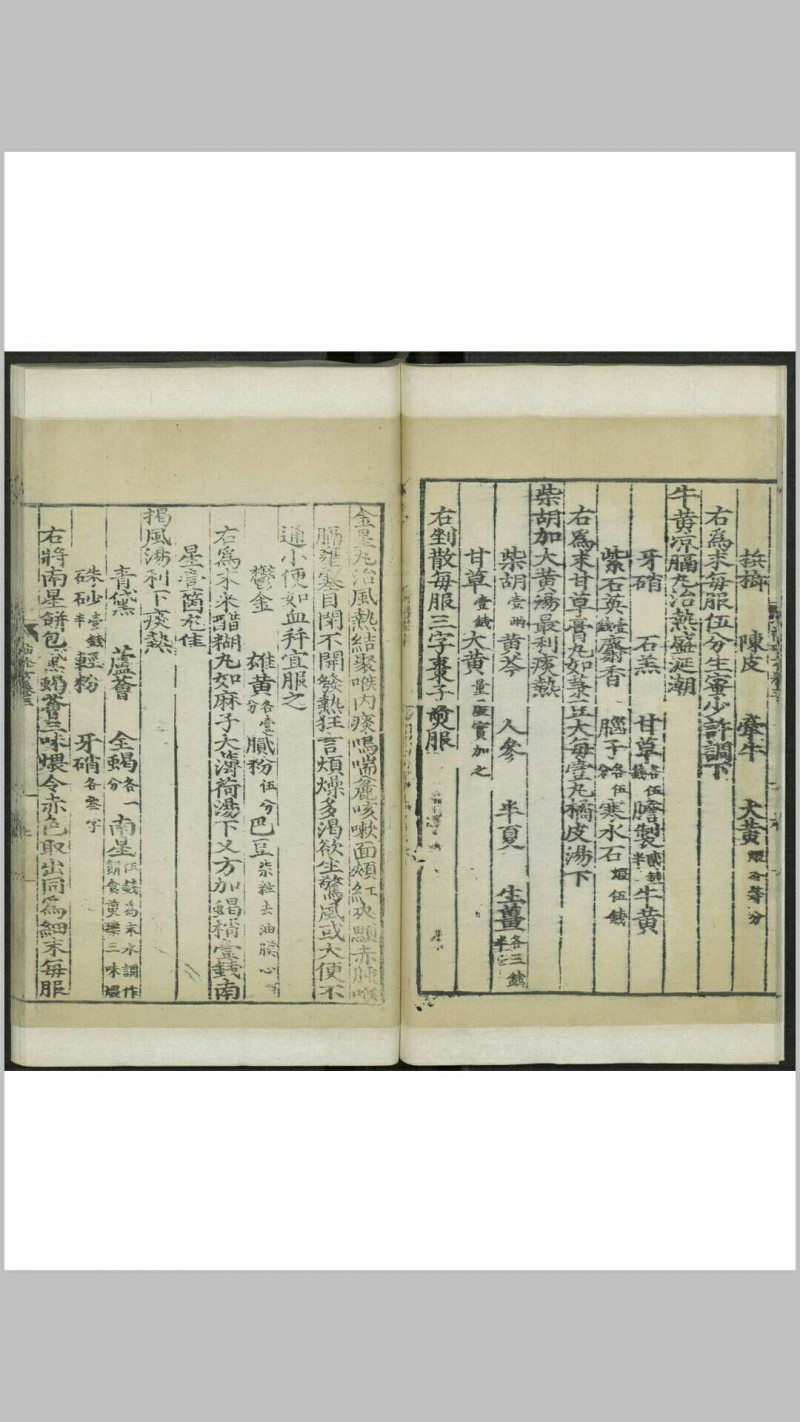 槟榔 陳皮 牽牛 大黄煨各等分
右爲末每服伍分生蜜少許調下
牛黄凉膈丸治熱盛涎潮
牙硝 石羔 甘草各伍錢 膽製 牛黄
紫石英壹錢 麝香 腦子各伍分 寒水石煅伍錢
右爲末甘草膏丸如菉豆大每壹丸橘皮湯下
柴胡加大黄湯最利痰熱
柴胡壹兩 黄芩 人參 半夏 生薑各三錢半
甘草壹錢 大黄量虛實加之
右剉散每服三字棗子煎服
金星丸治風熱結聚喉内痰鳴喘麄咳嗽面頰紅 顯赤 喉
膈壅塞目閉不開發熱狂言煩燥多渴欲生驚風或大便不
通小便如血幷宜服之
鬱金 雄黄各壹分 膩粉伍分 巴豆柒粒去油膜心
右爲末米醋糊丸如麻子大薄荷湯下又方加蝎梢壹錢南
星壹箇尤佳
揭風湯利下痰熱
青黛 蘆薈 全蝎各一分 南星伍錢爲末水調作餅 三味煨
硃砂壹錢半 輕粉 牙硝各叁字
右將南星餅包黛蝎薈三味煨令赤色取出同爲細末每服